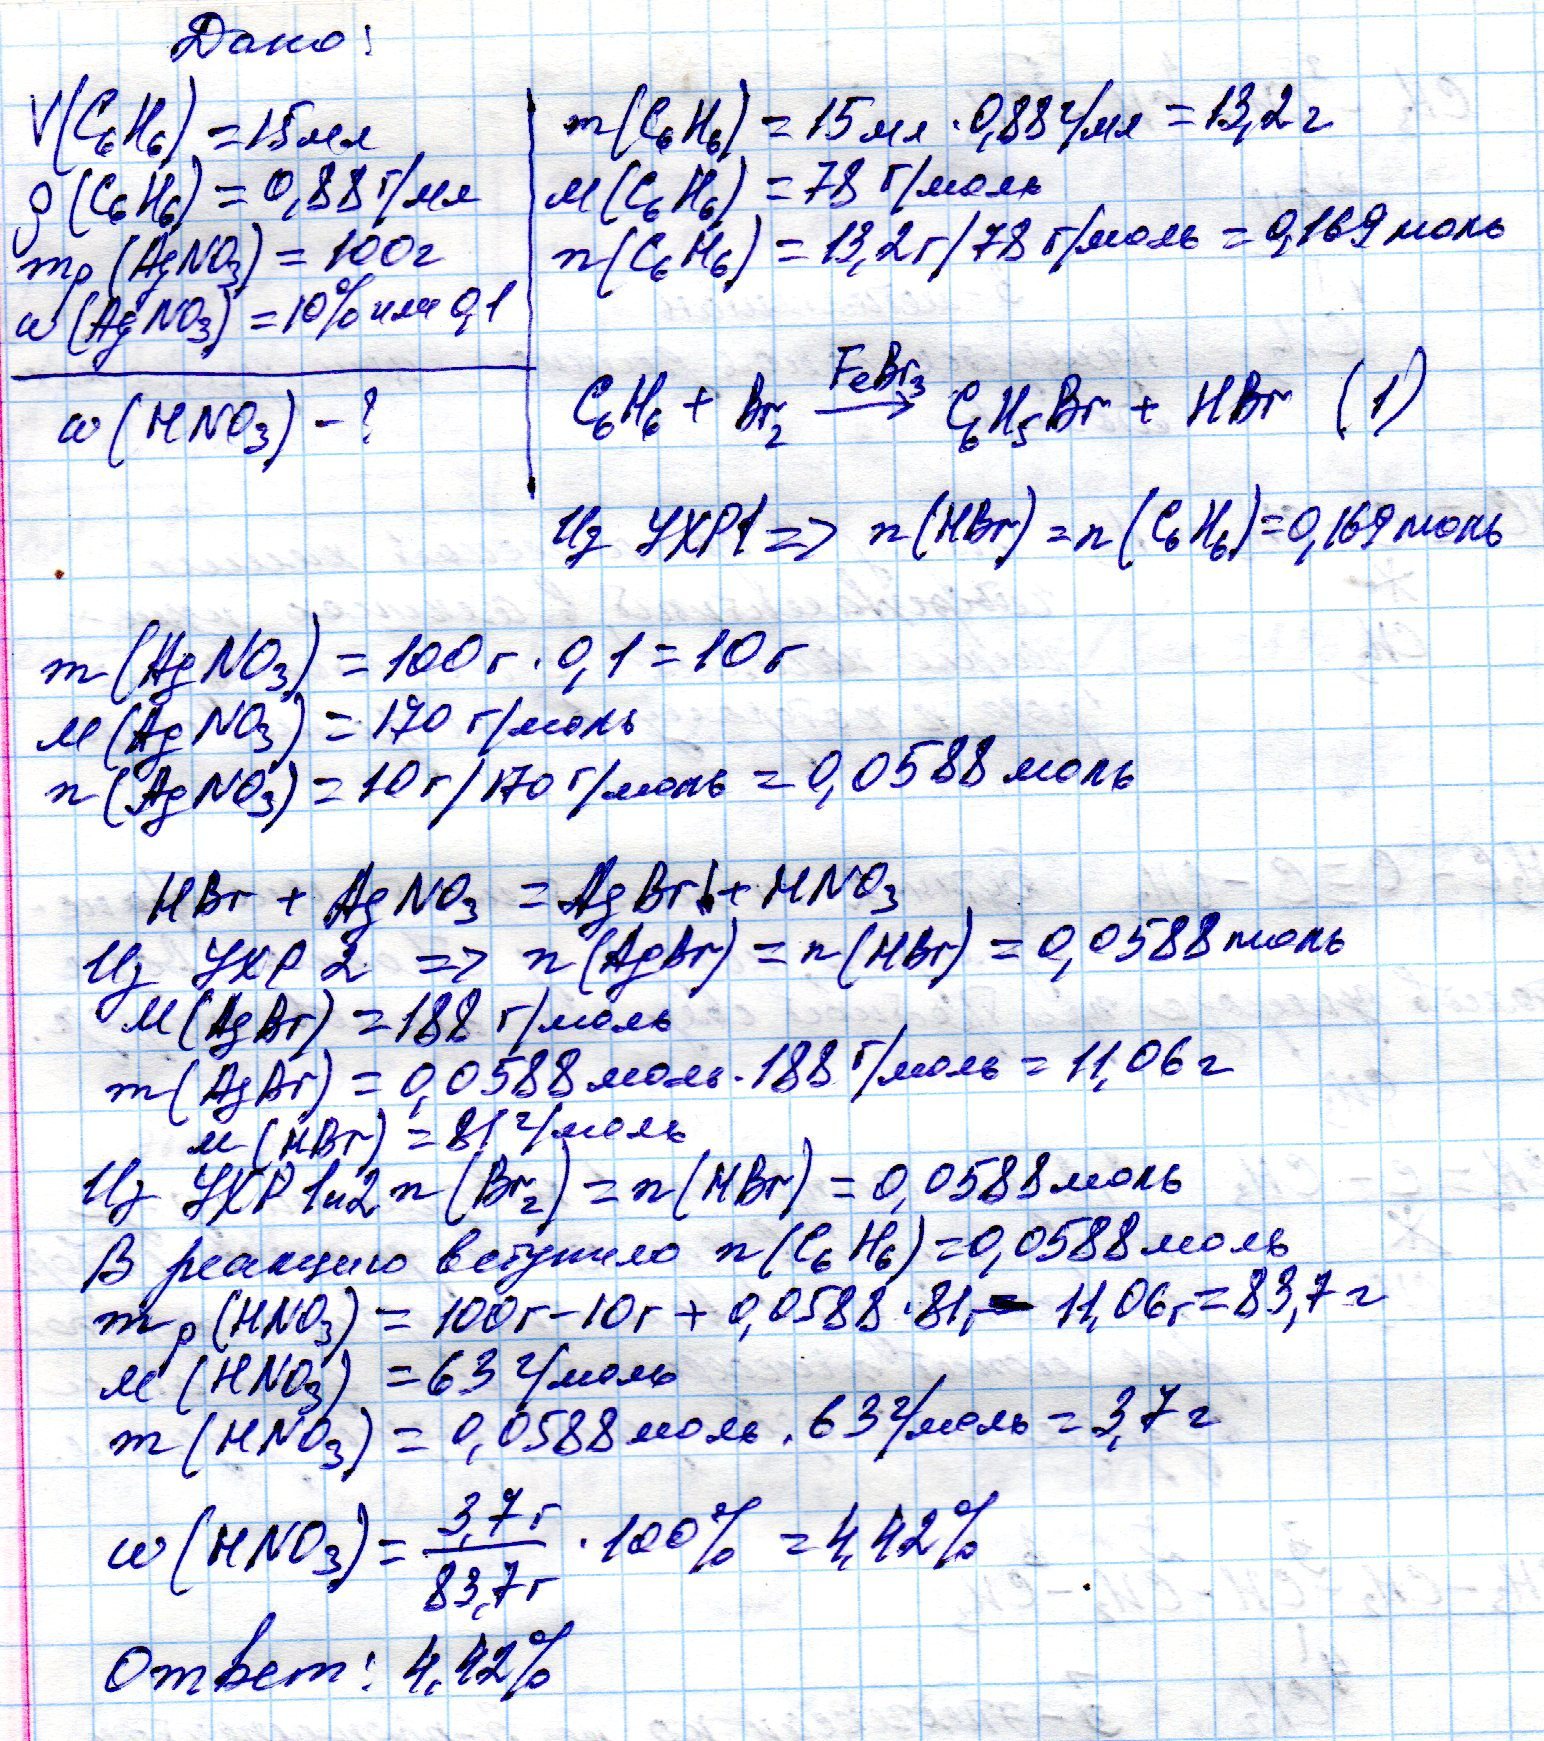 Дано:
V(C₆H₆) = 15 мл
ρ(C₆H₆) = 0,88 г/мл
mр(AgNO₃) = 100 г
w(AgNO₃) = 10% или 0,1
w(HNO₃) - ?
m(C₆H₆) = 15 мл · 0,88 г/мл = 13,2 г
M(C₆H₆) = 78 г/моль
n(C₆H₆) = 13,2 г/78 г/моль = 0,169 моль
C₆H₆ + Br₂ FeBr₃→ C₆H₅Br + HBr (1)
Из УХР1 => n(HBr) = n(C₆H₆) = 0,169 моль
m(AgNO₃) = 100 г · 0,1 = 10 г
M(AgNO₃) = 170 г/моль
n(AgNO₃) = 10 г/170 г/моль = 0,0588 моль
HBr + AgNO₃ = AgBr↓ + HNO₃
Из УХР 2 => n(AgBr) = n(HBr) = 0,0588 моль
M(AgBr) = 188 г/моль
m(AgBr) = 0,0588 моль · 188 г/моль = 11,06 г
M(HBr) = 81 г/моль
Из УХР 1и2 n(Br₂) = n(HBr) = 0,0588 моль
В реакцию вступило n(C₆H₆) = 0,0588 моль
mр(HNO₃) = 100г - 10г + 0,0588 · 81г - 11,06г = 83,7 г
M(HNO₃) = 63 г/моль
m(HNO₃) = 0,0588 моль · 63 г/моль = 3,7 г
w(HNO₃) = 3,7 г / 83,7 г · 100% = 4,42%
Ответ: 4,42%